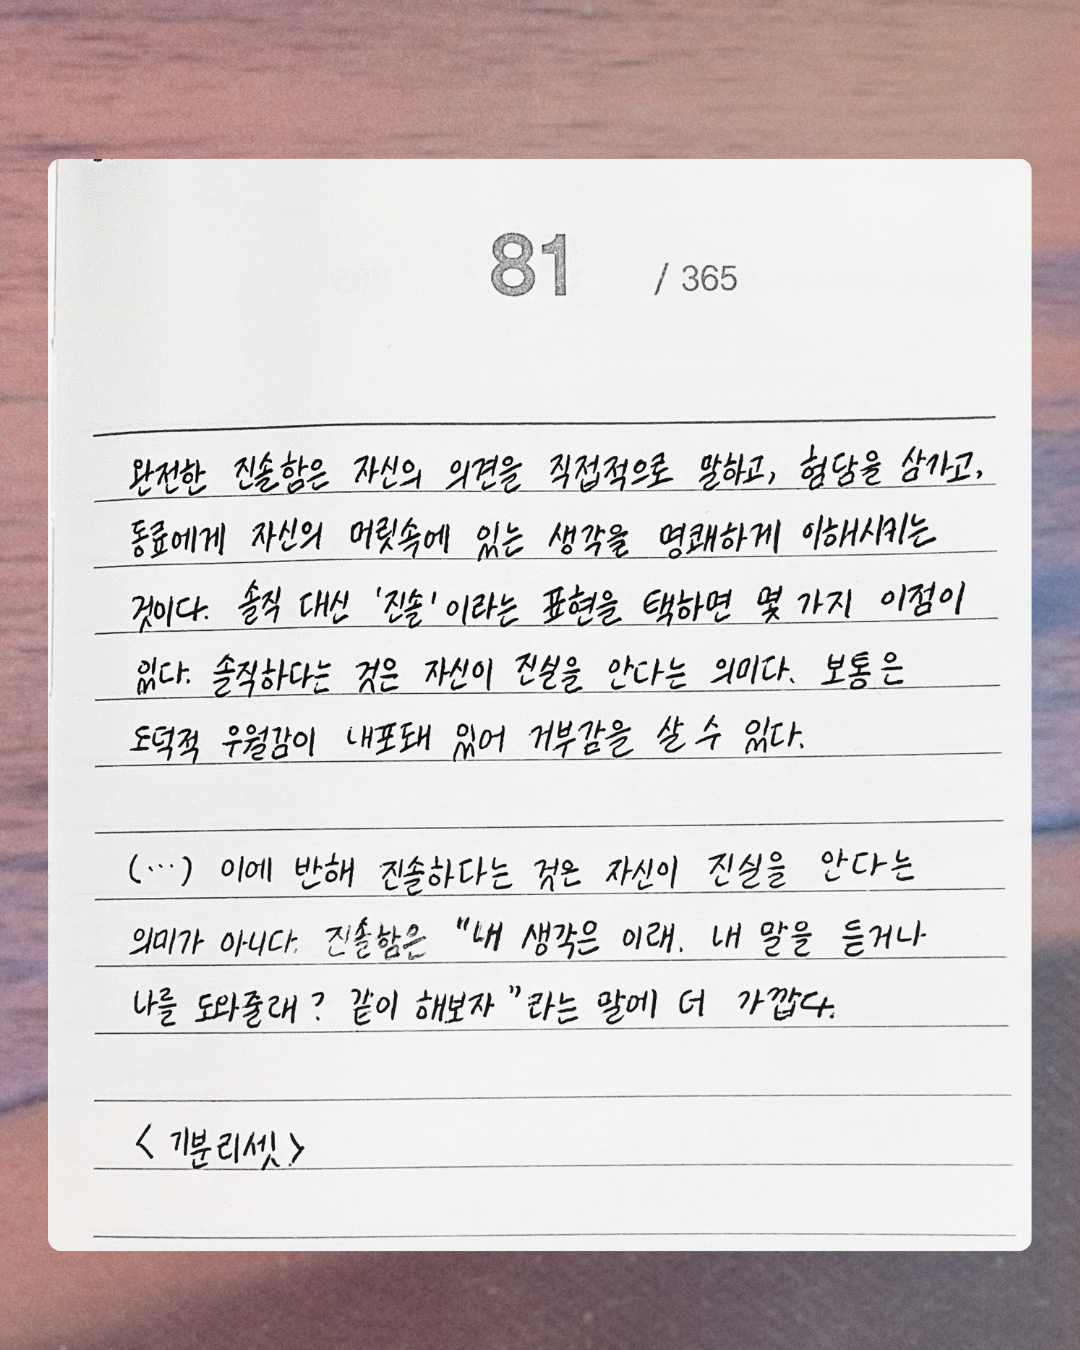 81 / 365
완전한 진솔함은 자신의 의견을 직접적으로 말하고, 험담을 삼가고,
동료에게 자신의 머릿속에 있는 생각을 명쾌하게 이해시키는
것이다. 솔직 대신 '진솔'이라는 표현을 택하면 몇 가지 이점이
있다. 솔직하다는 것은 자신이 진실을 안다는 의미다. 보통은
도덕적 우월감이 내포돼 있어 거부감을 살 수 있다.
(…) 이에 반해 진솔하다는 것은 자신이 진실을 안다는
의미가 아니다. 진솔함은 "내 생각은 이래. 내 말을 듣거나
나를 도와줄래? 같이 해보자"라는 말에 더 가깝다.
<기분리셋>